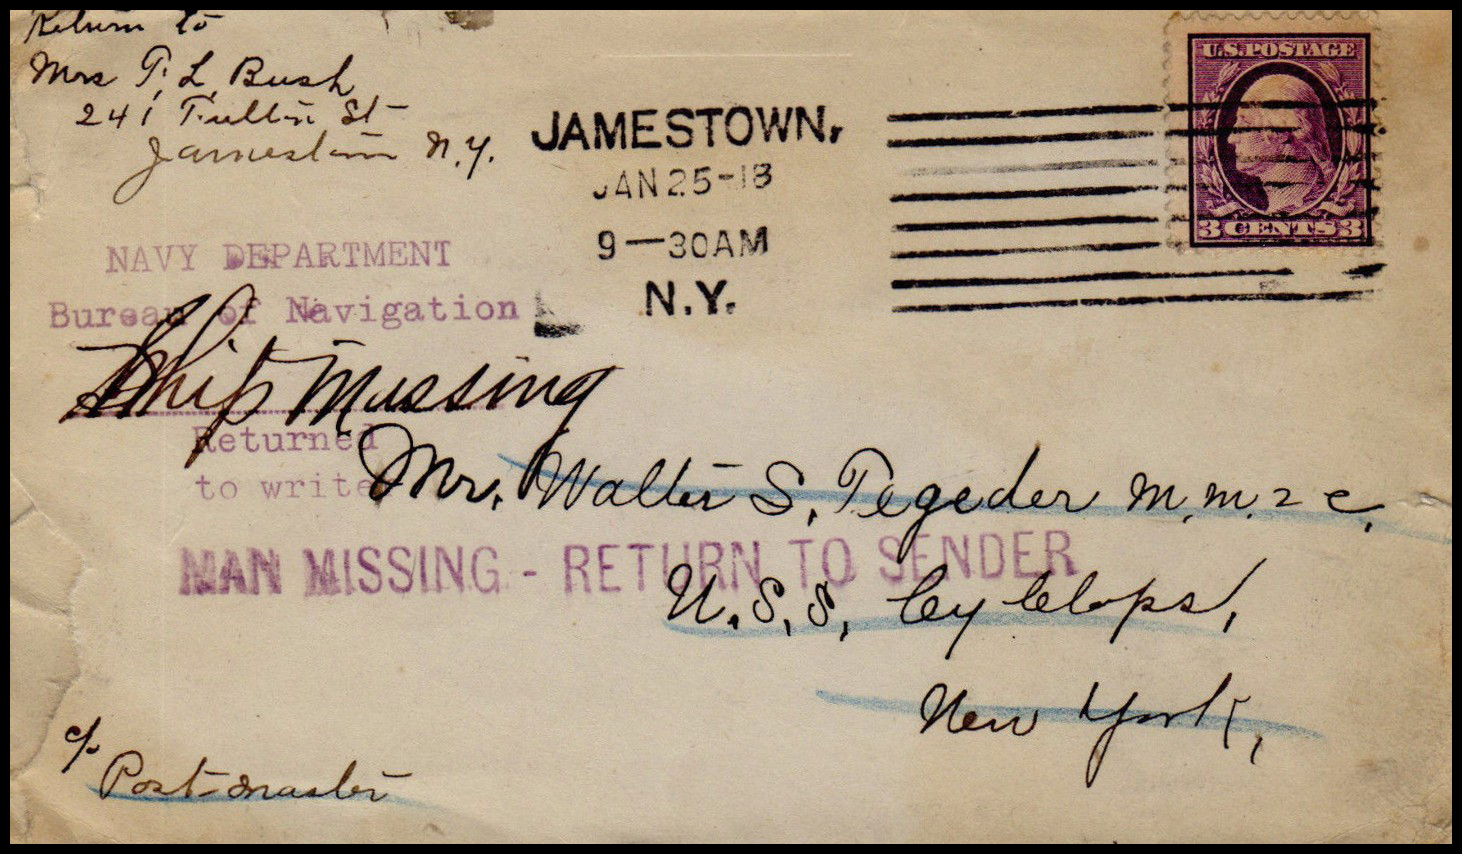 Return to
Mrs T. L. Bush
241 Fulton St
Jamestown N.Y.
JAMESTOWN,
JAN 25-18
9-30AM
N.Y.
U.S. POSTAGE
3 CENTS 3
NAVY DEPARTMENT
Bureau of Navigation
Ship Missing
Returned
to write
Mr. Walter S. Tegeder M.M. 2 C.
MAN MISSING - RETURN TO SENDER
U.S.S. Cyclops,
New York,
c/o
Postmaster